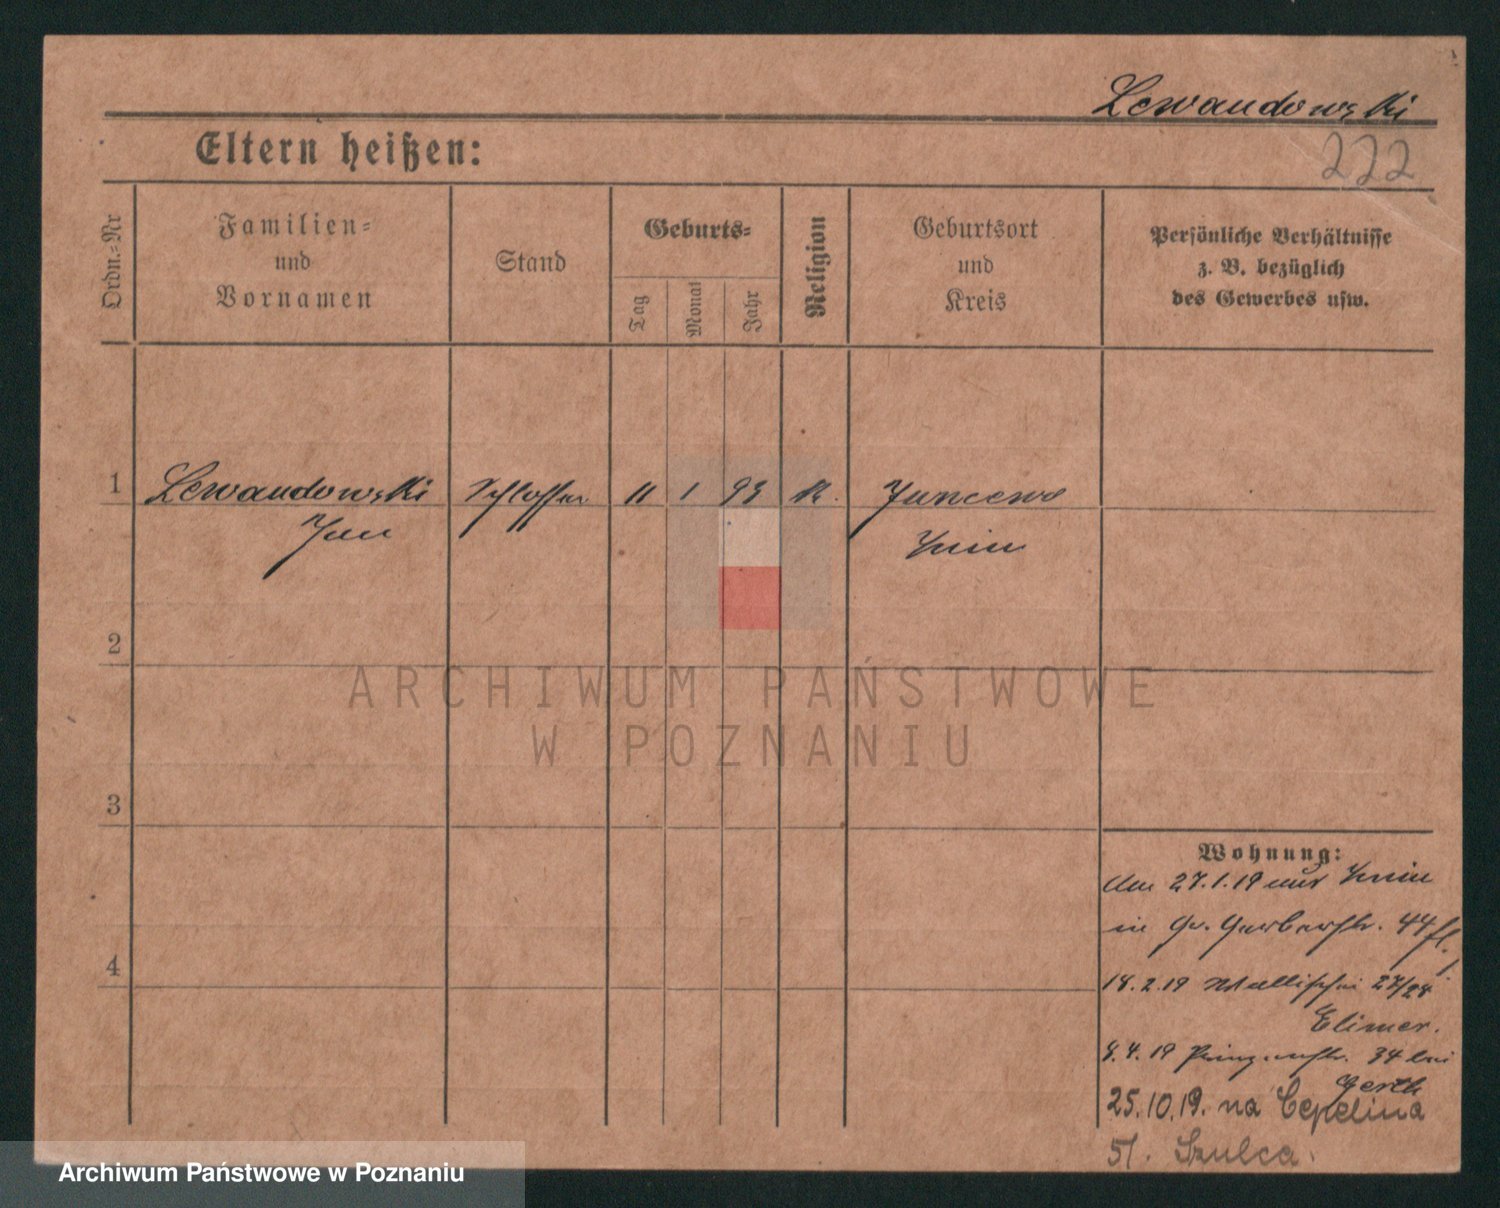 Lewandowski
222
Eltern heißen:
Ordn.-Nr
Familien-
und
Vornamen
Stand
Geburts-
Tag
Monat
Jahr
Religion
Geburtsort
und
Kreis
Persönliche Verhältnisse
z. B. bezüglich
des Gewerbes usw.
1 Lewandowski Schlosser 11 1 93 K. Juncewo
Jan Znin
2
ARCHIWUM PAŃSTWOWE
W POZNANIU
3
Wohnung:
den 27.1.19 aus Znin
in Gr. Gerberstr. 44
4
18.2.19 Wallischei 27/28
Elimer.
8.4.19 34 bei
Gerth
25.10.19. na Cepelina
51. Szulca.
Archiwum Państwowe w Poznaniu